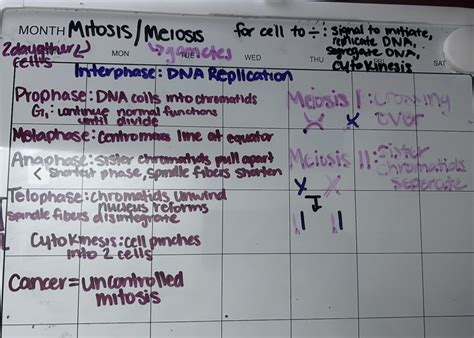 MONTH Mitosis/Meiosis
for cell to ÷: signal to mitiate,
replicate DNA,
seperate DNA,
Cytokinesis
2 daugther cells
→ gametes
MON TUE WED THU FRI SAT
Interphase: DNA Replication
Prophase: DNA coils into chromatids
G₁: continue normal functions
until divide
Metaphase: Centromeres line at equator
Anaphase: Sister chromatids pull apart
shortest phase, spindle fibers shorten
Telophase: chromatids unwind
nucleus reforms
spindle fibers disintegrate
Cytokinesis: cell pinches
into 2 cells
Cancer = uncontrolled
mitosis
Meiosis I: Crossing
over
Meiosis II: Sister
Chromatids
Seperate